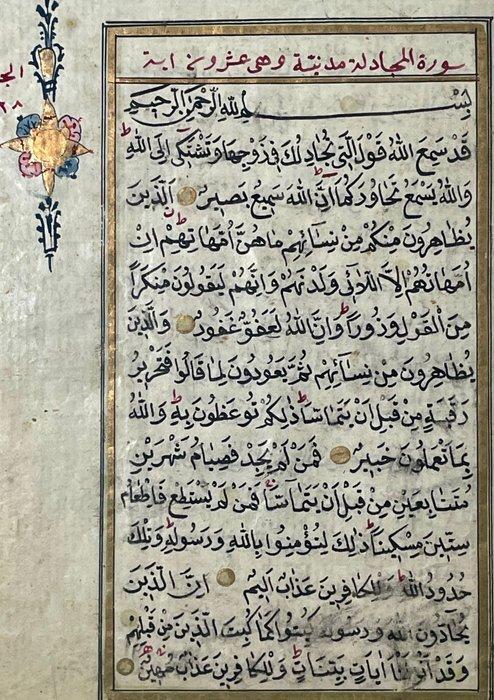 سورة المجادلة مدنية وهى عشرون اية
بسم لله الرحمن الرحيم
قَدْ سَمِعَ اللّٰهُ قَوْلَ الَّتِى تُجَادِلُكَ فِى زَوْجِهَا وَتَشْتَكِى اِلَى اللّٰهِ
وَاللّٰهُ يَسْمَعُ تَحَاوُرَكُمَا اِنَّ اللّٰهَ سَمِيعٌ بَصِيرٌ اَلَّذِينَ
يُظَاهِرُونَ مِنْكُمْ مِنْ نِسَائِهِمْ مَا هُنَّ اُمَّهَاتِهِمْ اِنْ
اُمَّهَاتُهُمْ اِلَّا اللَّائِى وَلَدْنَهُمْ وَاِنَّهُمْ لَيَقُولُونَ مُنْكَرًا
مِنَ الْقَوْلِ وَزُورًا وَاِنَّ اللّٰهَ لَعَفُوٌّ غَفُورٌ وَالَّذِينَ
يُظَاهِرُونَ مِنْ نِسَائِهِمْ ثُمَّ يَعُودُونَ لِمَا قَالُوا فَتَحْرِيرُ
رَقَبَةٍ مِنْ قَبْلِ اَنْ يَتَمَاسَّا ذٰلِكُمْ تُوعَظُونَ بِهِ وَاللّٰهُ
بِمَا تَعْمَلُونَ خَبِيرٌ فَمَنْ لَمْ يَجِدْ فَصِيَامُ شَهْرَيْنِ
مُتَتَابِعَيْنِ مِنْ قَبْلِ اَنْ يَتَمَاسَّا فَمَنْ لَمْ يَسْتَطِعْ فَاِطْعَامُ
سِتِّينَ مِسْكِينًا ذٰلِكَ لِتُؤْمِنُوا بِاللّٰهِ وَرَسُولِهِ وَتِلْكَ
حُدُودُ اللّٰهِ وَلِلْكَافِرِينَ عَذَابٌ اَلِيمٌ اِنَّ الَّذِينَ
يُحَادُّونَ اللّٰهَ وَرَسُولَهُ كُبِتُوا كَمَا كُبِتَ الَّذِينَ مِنْ قَبْلِهِمْ
وَقَدْ اَنْزَلْنَا اٰيَاتٍ بَيِّنَاتٍ وَلِلْكَافِرِينَ عَذَابٌ مُهِينٌ